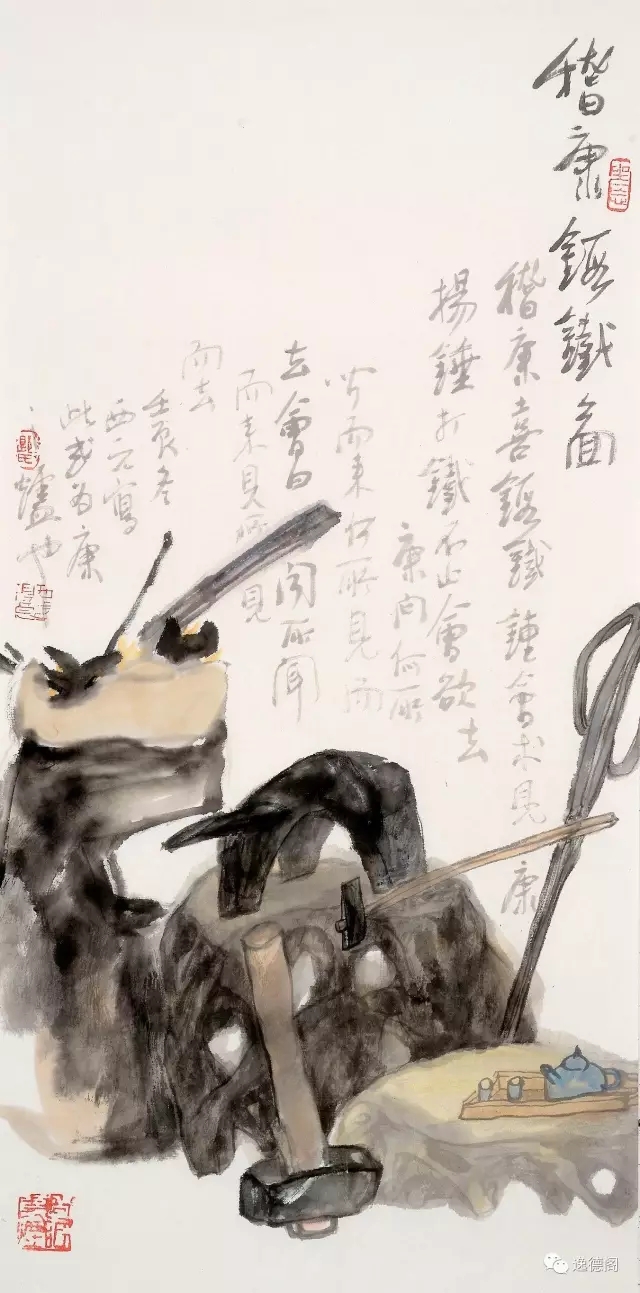 嵇康鍛鐵圖
嵇康喜鍛鐵鍾會求見康
揚錘打鐵不止會欲去
康問何所
聞而來何所見而
去會曰聞所聞
而來見所見
而去
壬辰冬
西元寫
此或为康
之爐也
逸德阁